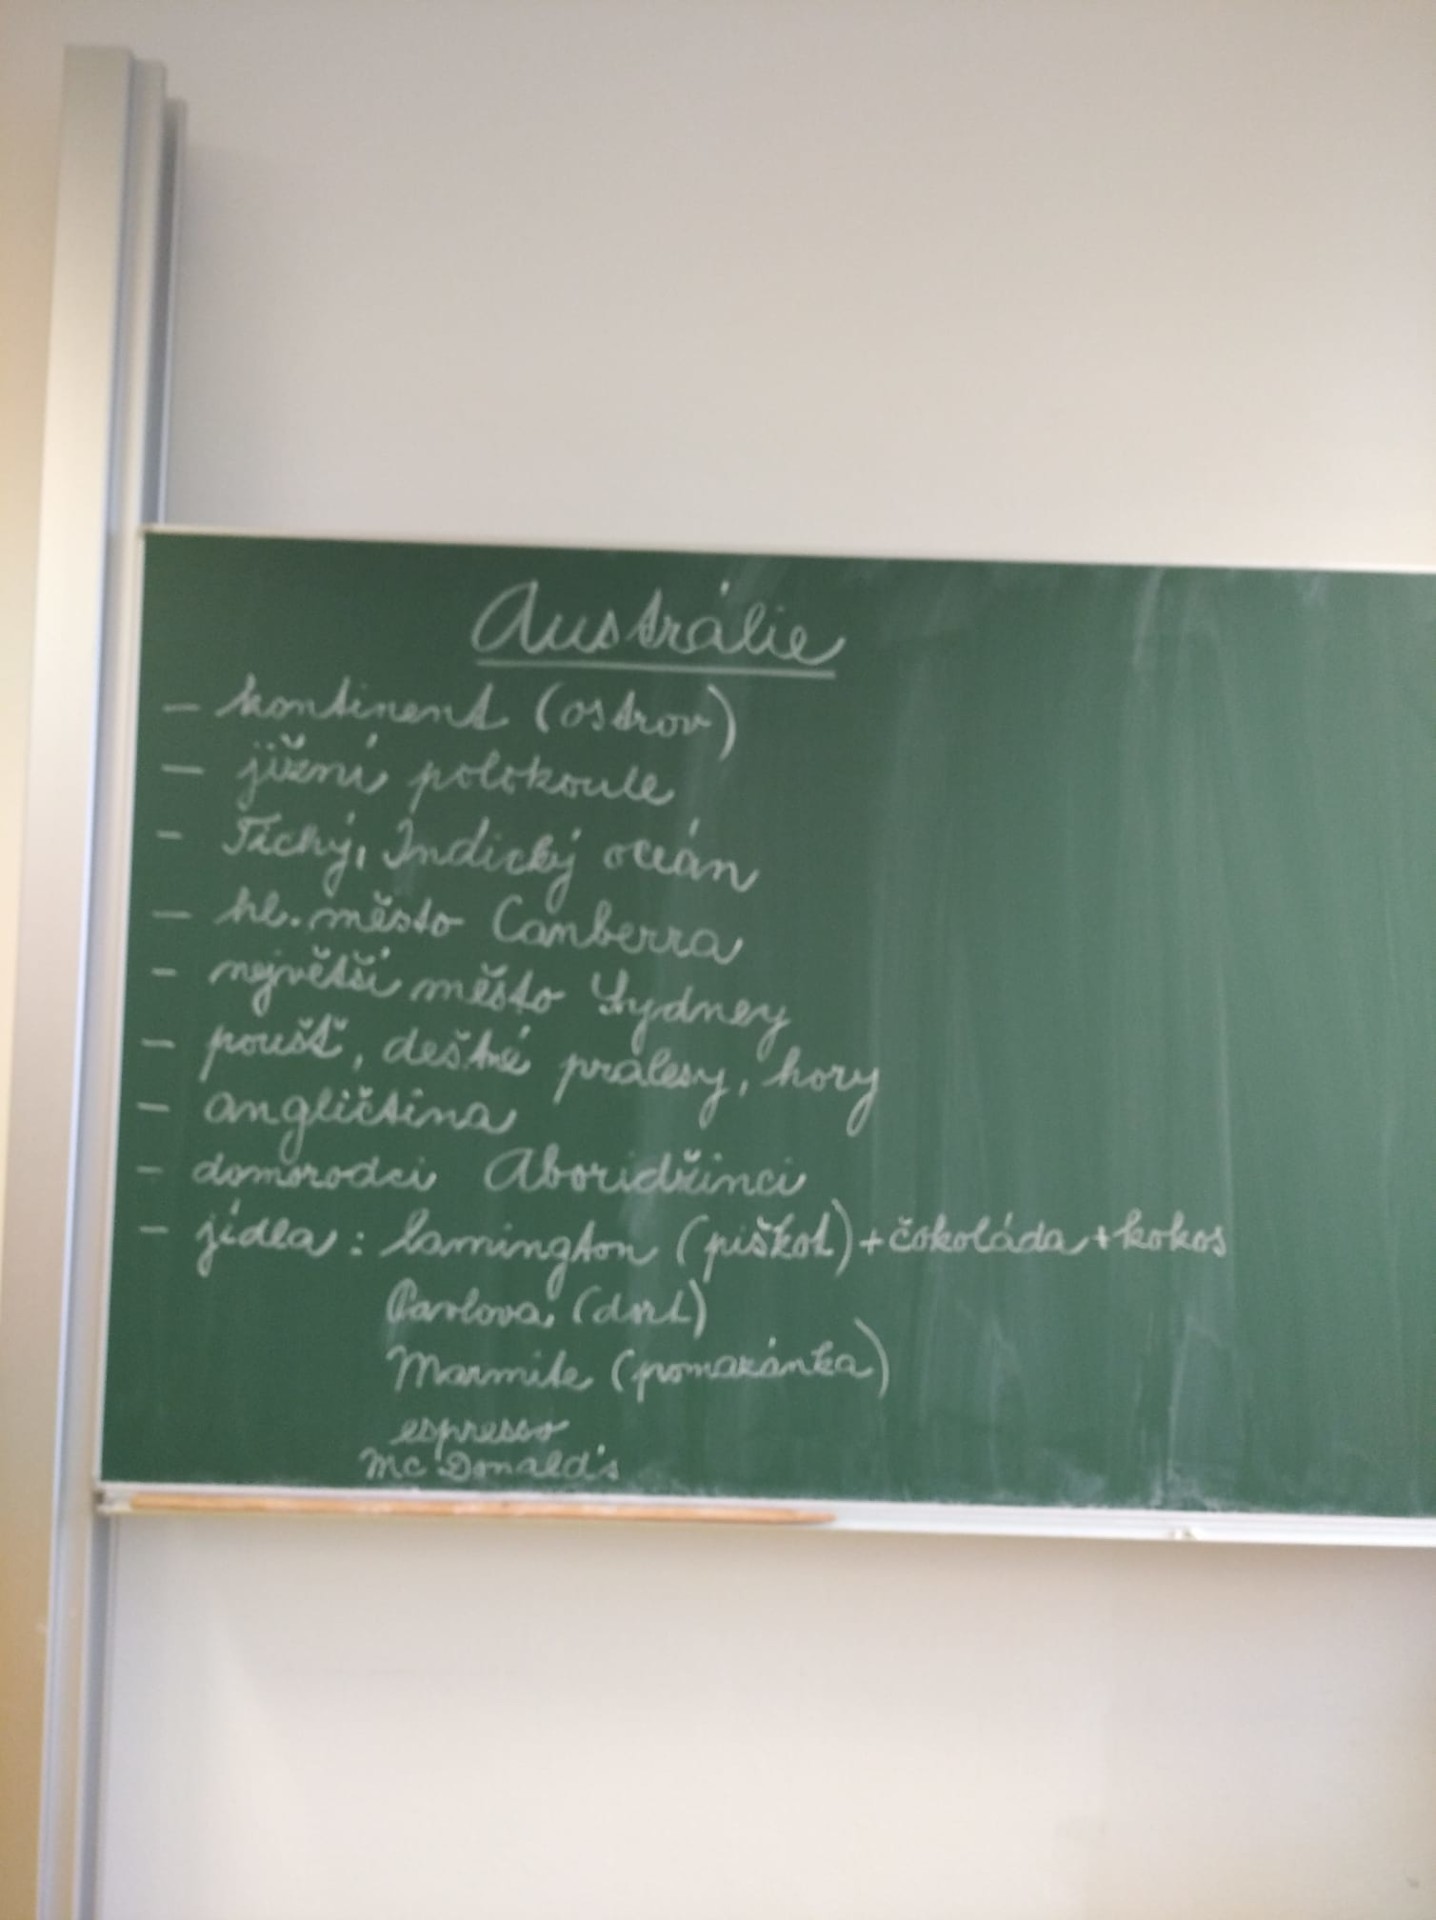 Austrálie
- kontinent (ostrov)
- jižní polokoule
- Tichý, Indický oceán
- hl. město Canberra
- největší město Sydney
- poušť, deštné pralesy, hory
- angličtina
- domorodci Aboridžinci
- jídla: lamington (piškot) + čokoláda + kokos
Pavlova (dort)
Marmite (pomazánka)
espresso
Mc Donald's